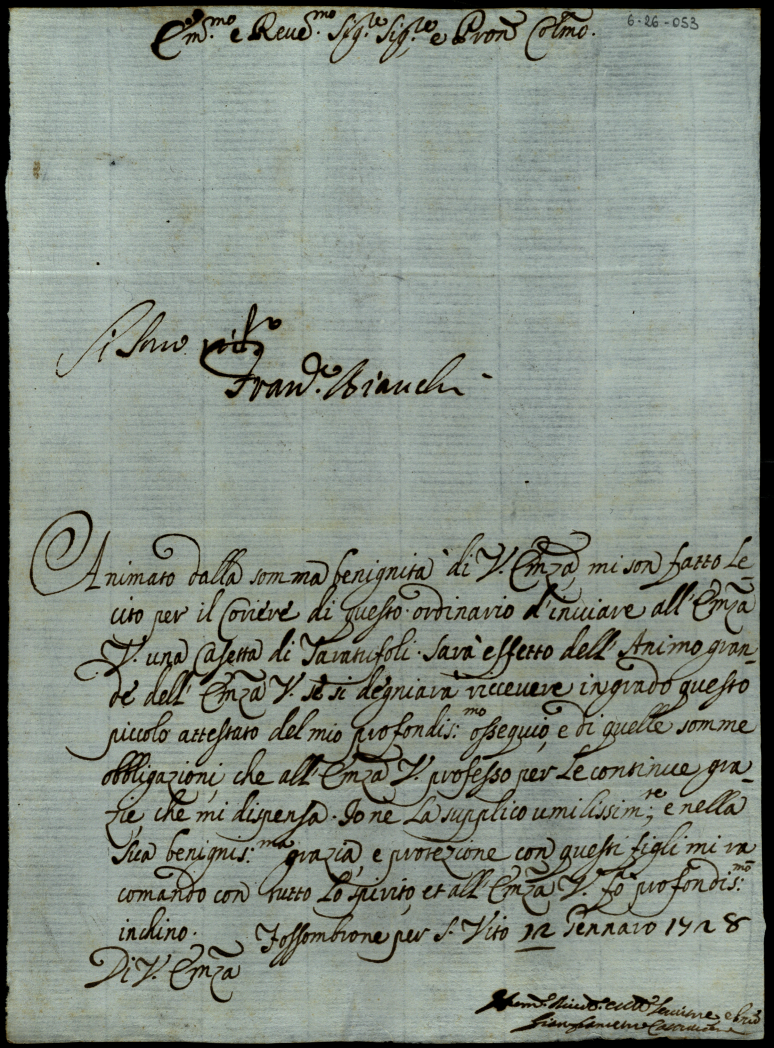 Em.mo e Reue.mo Sig.re Sig.re e Pron Colmo.
6-26-053
Si
Fran.co Bianchi
Animato dalla somma benignità di V. Emza, mi son fatto le-
cito per il Coriere di questo ordinario d'inuiare all'Emza
V. una Casetta di Taratufoli. Sarà effetto dell'Animo gran-
de dell'Emza V. se si degniarà riceuere in grado questo
piccolo attestato del mio profondis:mo ossequio, e di quelle somme
obbligazioni, che all'Emza V. professo per le continue gra-
zie, che mi dispensa. Io ne la supplico umilissim:te, e nella
Sua benignis:ma grazia, e protezione con questi figli mi ra
comando con tutto lo spirito, et all'Emza V. fò profondis:mo
inchino. Fossombrone per S. Vito 12 Gennaro 1728
Di V. Emza